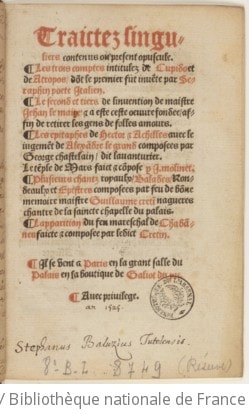 Traictez singu-
liers contenus ou present opuscule.
¶ Les trois comptes intitulez de Cupido et
de Atropos, dõt le premier fut invẽte par Se-
raphin poete Italien.
¶ Le second et tiers de linuention de maistre
Jehan le maire, et a este ceste oeuure fondee af-
fin de retirer les gens de folles amours.
¶ Les epitaphes de Hector et Achilles auec le
iugemẽt de Alexãdre le grand composees par
George chastelain, dit lauanturier.
Le tẽple de Mars faict et cõpose p J. molinet.
¶ Plusieurs chants royaulx Balades Ron-
deaulx et Epistres composees par feu de bõne
memoire maistre Guillaume cretin nagueres
chantre de la saincte chapelle du palais.
¶ Lapparition du feu mareschal de Chabã-
nes faicte et composee par ledict Cretin.
¶ Il se vent a Paris en la grant salle du
Palais en la boutique de Galiot du pre.
¶ Auec priuilege.
an 1525.
Stephanus Baluzius Tutelensis.
8° B.L. 8749 (Réserve)
/ Bibliothèque nationale de France